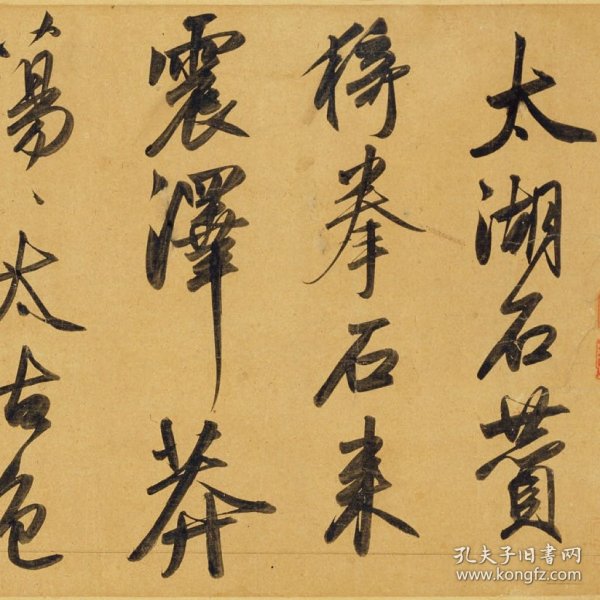 太湖石贊
猗拳石来
震澤莽
蕩、太古色
孔夫子旧书网
www.kongfz.com